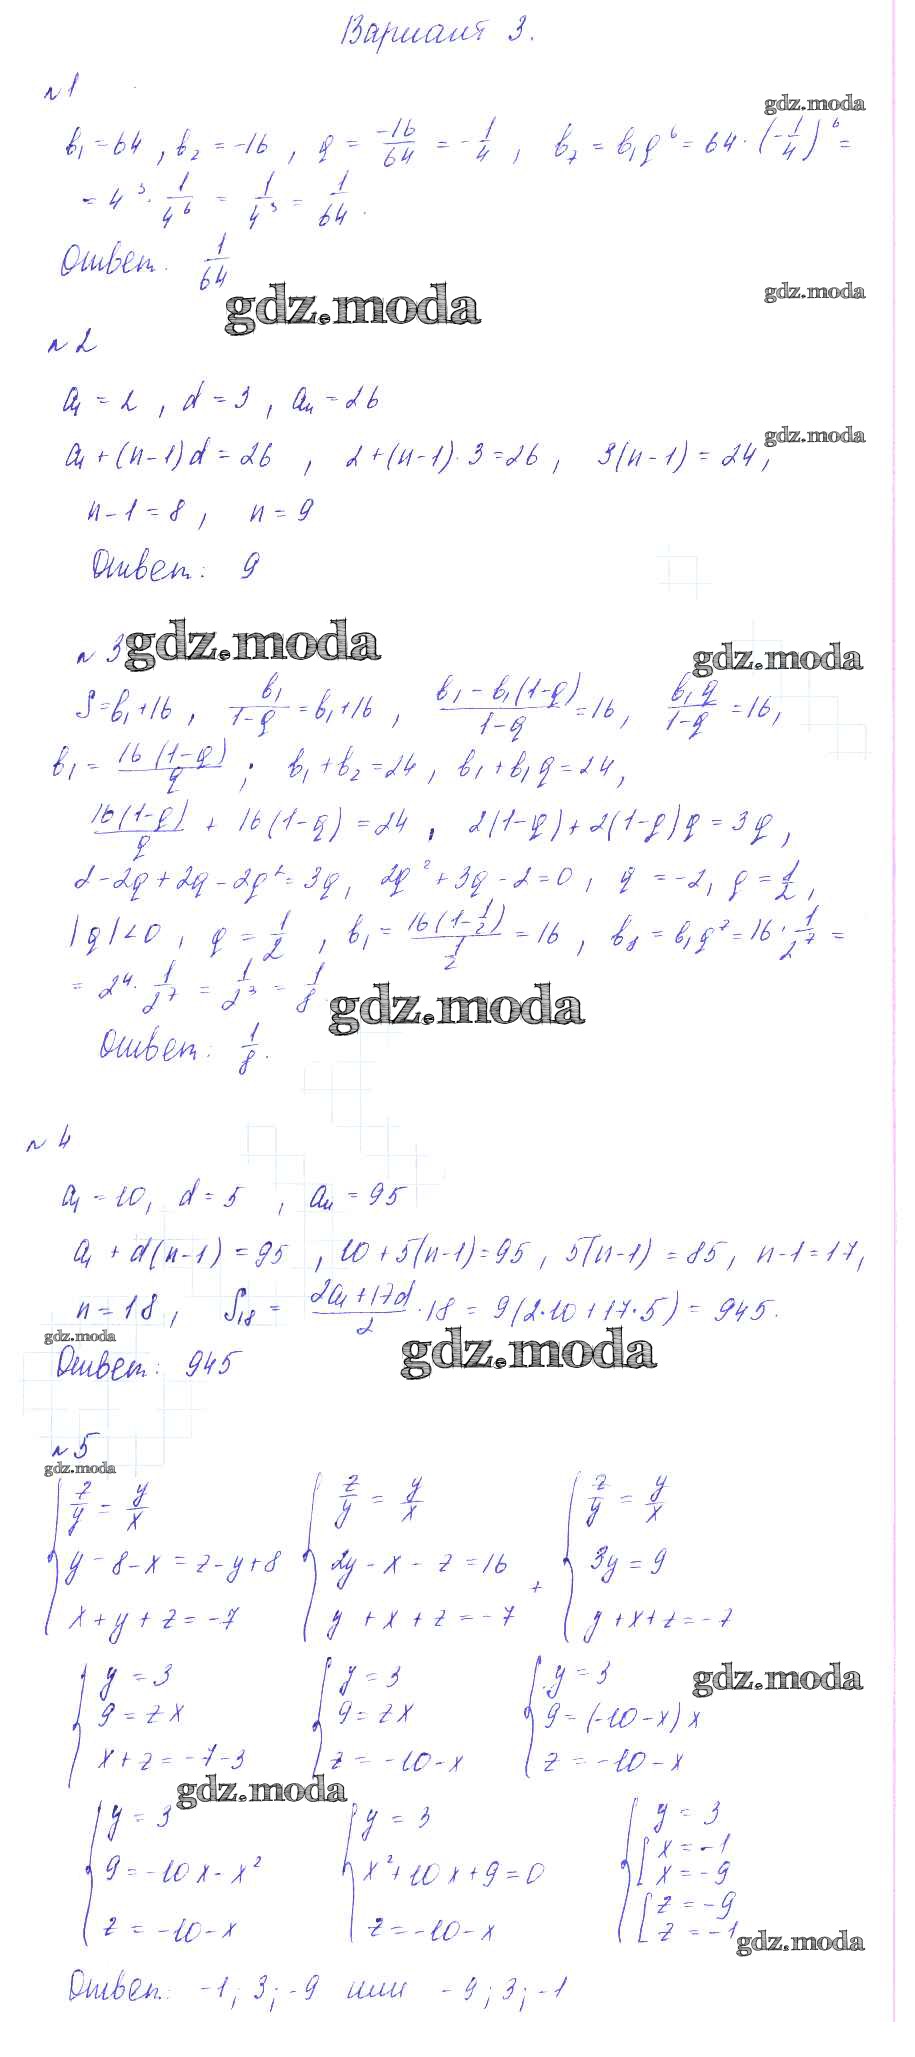 Вариант 3.
№1
gdz.moda
b₁ = 64, b₂ = -16, q = -16/64 = -1/4, b₇ = b₁q⁶ = 64·(-1/4)⁶ =
= 4³·1/4⁶ = 1/4³ = 1/64.
Ответ. 1/64
gdz.moda
gdz.moda
№2
a₁ = 2, d = 3, aₙ = 26
gdz.moda
a₁ + (n-1)d = 26, 2+(n-1)·3=26, 3(n-1) = 24,
n-1=8, n=9
Ответ: 9
№3
gdz.moda
gdz.moda
S=b₁+16, b₁/(1-q) = b₁+16, (b₁-b₁(1-q))/(1-q) = 16, b₁q/(1-q) = 16,
b₁ = 16(1-q)/q; b₁+b₂=24, b₁+b₁q=24,
16(1-q)/q + 16(1-q) = 24, 2(1-q)+2(1-q)q=3q,
2-2q+2q-2q²=3q, 2q²+3q-2=0, q=-2, q=1/2,
|q|<0, q=1/2, b₁ = 16(1-1/2)/(1/2) = 16, b₈ = b₁q⁷=16·1/2⁷ =
= 2⁴·1/2⁷ = 1/2³ = 1/8.
gdz.moda
Ответ: 1/8.
№4
a₁ = 10, d = 5, aₙ = 95
a₁ + d(n-1) = 95, 10+5(n-1)=95, 5(n-1) = 85, n-1=17,
n=18, S₁₈ = (2a₁+17d)/2 · 18 = 9(2·10+17·5) = 945.
gdz.moda
gdz.moda
Ответ: 945
№5
gdz.moda
{ z/y = y/x { z/y = y/x { z/y = y/x
y-8-x = z-y+8 2y-x-z=16 + 3y=9
x+y+z=-7 y+x+z=-7 y+x+z=-7
{ y=3 { y=3 { y=3
gdz.moda
9=zx 9=zx 9=(-10-x)x
x+z=-7-3 z=-10-x z=-10-x
gdz.moda
{ y=3 { y=3 { y=3
9=-10x-x² x²+10x+9=0 [ x=-1
x=-9
z=-10-x z=-10-x [ z=-9
z=-1
gdz.moda
Ответ: -1; 3; -9 или -9; 3; -1